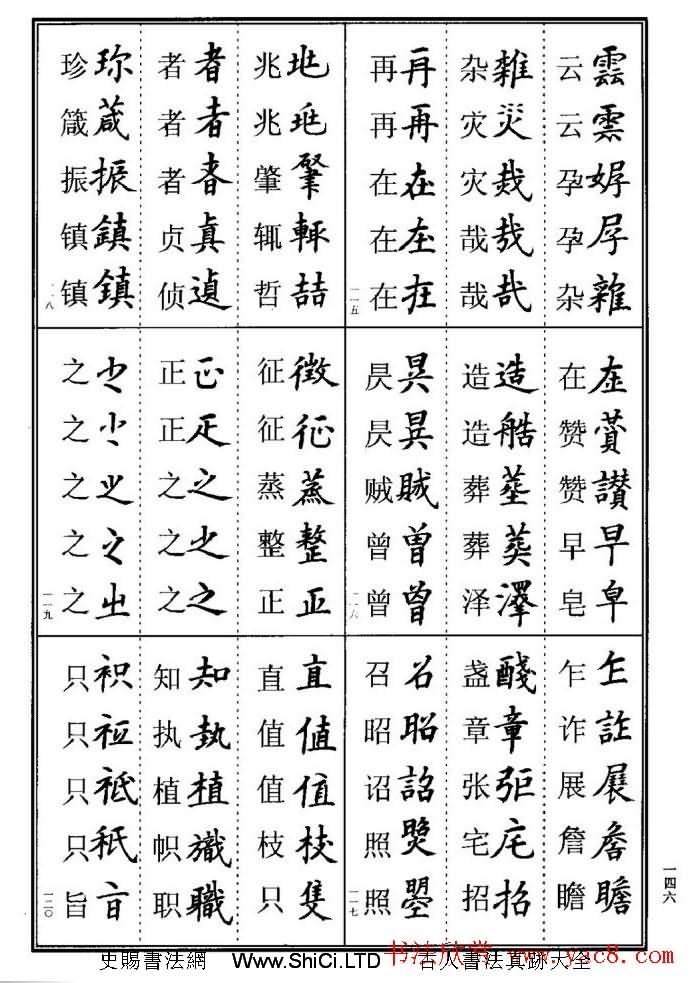 云雲 云雲 孕 孕 杂雜
杂雜 灾災 灾烖 哉哉 哉
再再 再再 在在 在在 在在
一一五
在在 赞 赞讃 早早 皂皁
造造 造艁 葬 葬 泽澤
昃 昃 贼 曾曽 曾曾
一一六
乍乍 诈詐 展展 詹詹 瞻瞻
盏醆 章章 张 宅宅 招招
召召 昭昭 诏詔 照 照曌
一一七
兆 兆 肇肇 辄輙 哲喆
者者 者者 者 贞真 侦遉
珍珎 箴葴 振振 镇鎮 镇鎮
一一八
征徵 征征 蒸蒸 整整 正正
正 正 之之 之 之之
之 之 之 之之 之㞢
一一九
直直 值值 值值 枝枝 只隻
知知 执執 植植 帜 职職
只 只 只 只秖 旨
一二〇
一四六
史賜書法網 Www.ShiCi.LTD 古人書法真跡大全
书法欣赏 www.yac8.com